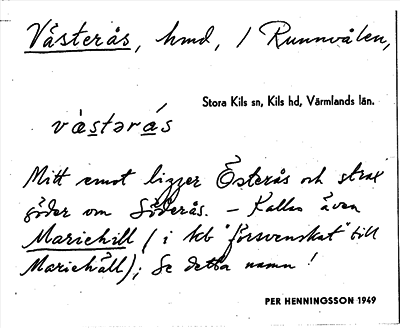 Västerås, hmd, / Runnvålen,
Stora Kils sn, Kils hd, Värmlands län.
vàstərás
Mitt emot ligger Österås och strax
söder om Söderås. – Kallas även
Mariehill (i kb "försvenskat" till
Mariehäll); Se detta namn!
PER HENNINGSSON 1949